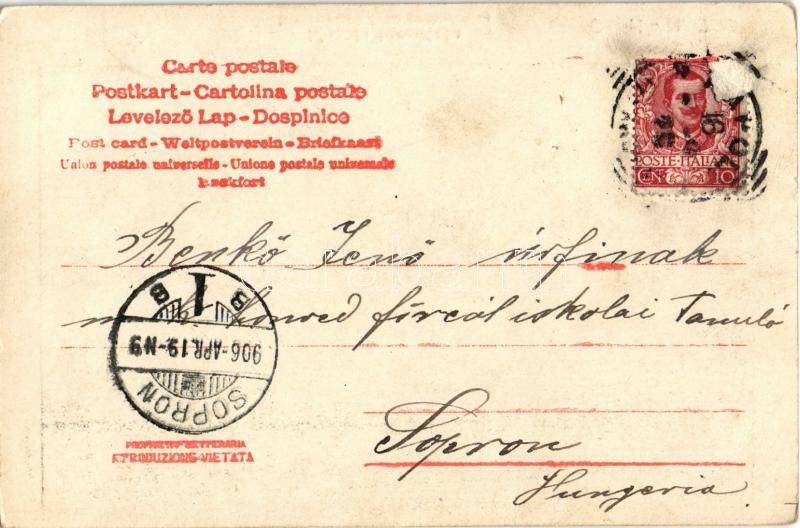 Carte postale
Postkart - Cartolina postale
Levelező Lap - Dospinice
Post card - Weltpostverein - Briefkaart
Union postale universelle - Unione postale universale
Brefkort
POSTE · ITALIANE
CN 10
Benkő Jenő úrfinak
m. k. honvéd főreál iskolai Tanuló
Sopron
Hungeria
SOPRON
906 - APR. 19 - N9
PROPRIETÀ LETTERARIA
RIPRODUZIONE VIETATA